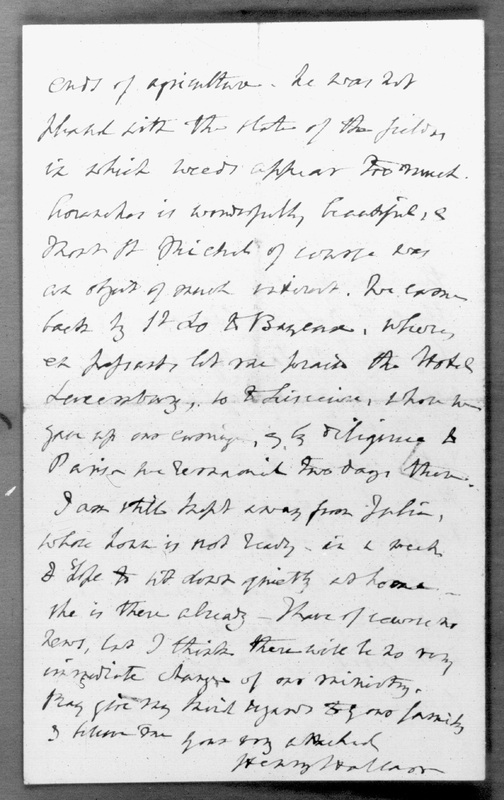 ends of agriculture. he was not
pleased with the state of the fields,
in which weeds appear too much.
Avranches is wonderfully beautiful, &
Mont St Michel of course was
an object of much interest. We came
back by St Lo & Bayeux, where,
en passant, let me praise the Hotel
Luxembourg, so to Lisieux, where we
gave up our carriage, & by diligence to
Paris. we remained two days there.
I am still kept away from Julia,
whose house is not ready. in a week
I hope to sit down quietly at home –
she is there already – I have of course no
news, but I think there will be no very
immediate change of our ministry.
Pray give my kind regards to your family
& believe me yours very attached
Henry Hallam